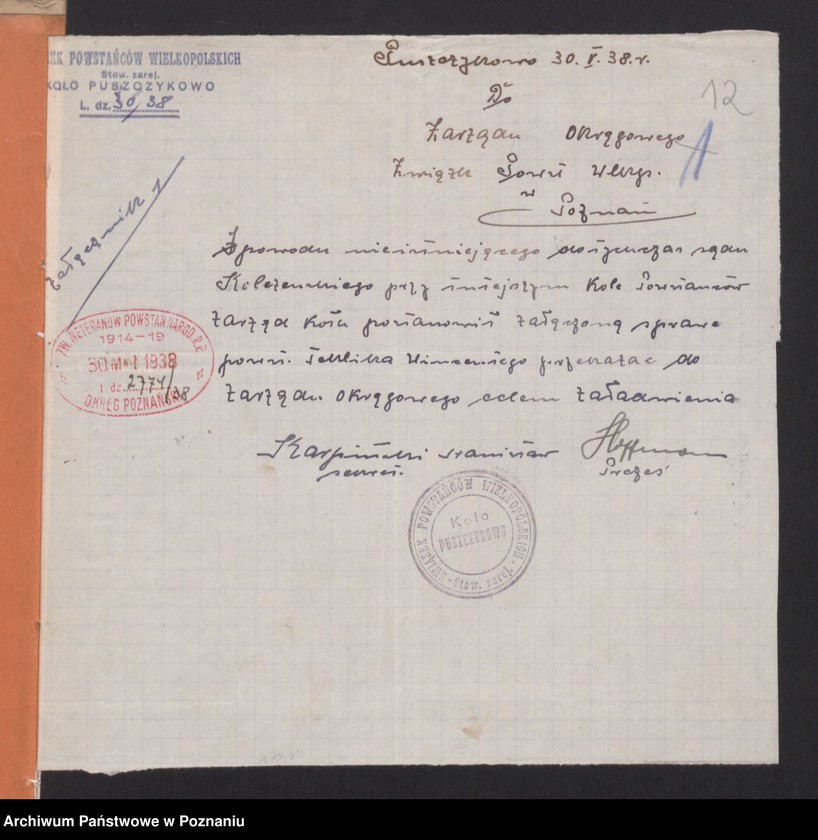 ZEK POWSTAŃCÓW WIELKOPOLSKICH
Stow. zarej.
KOŁO PUSZCZYKOWO
L. dz. 30/38
Puszczykowo 30. V. 38. r.
12
Do
Zarządu Okręgowego
Związk Powst Wlkp.
w
Poznań
1
Załącznik 1
Z powodu nieistniejącego dotychczas sądu
Koleżeńskiego przy tutejszym Kole Powstańców
Zarząd Koła postanowił załączoną sprawę
powst. Wincentego przekazać do
Zarządu Okręgowego celem załadwienia
ZW. WETERANÓW POWSTAŃ NAROD. R.P.
1914-19
30 MAJ 1938
l. dz. 2774/38
OKRĘG POZNAŃSKI
Karpiński Stanisław
sekret.
Hoffmann
Prezes
ZWIĄZEK POWSTAŃCÓW WIELKOPOLSKICH - Stow. zarej. -
Koło
PUSZCZYKOWO
Archiwum Państwowe w Poznaniu